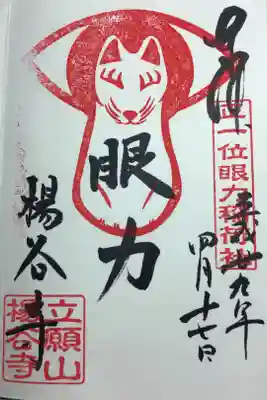 正一位眼力稲荷社
平成廿九年
四月十七日
眼力
楊谷寺
立願山
楊谷寺